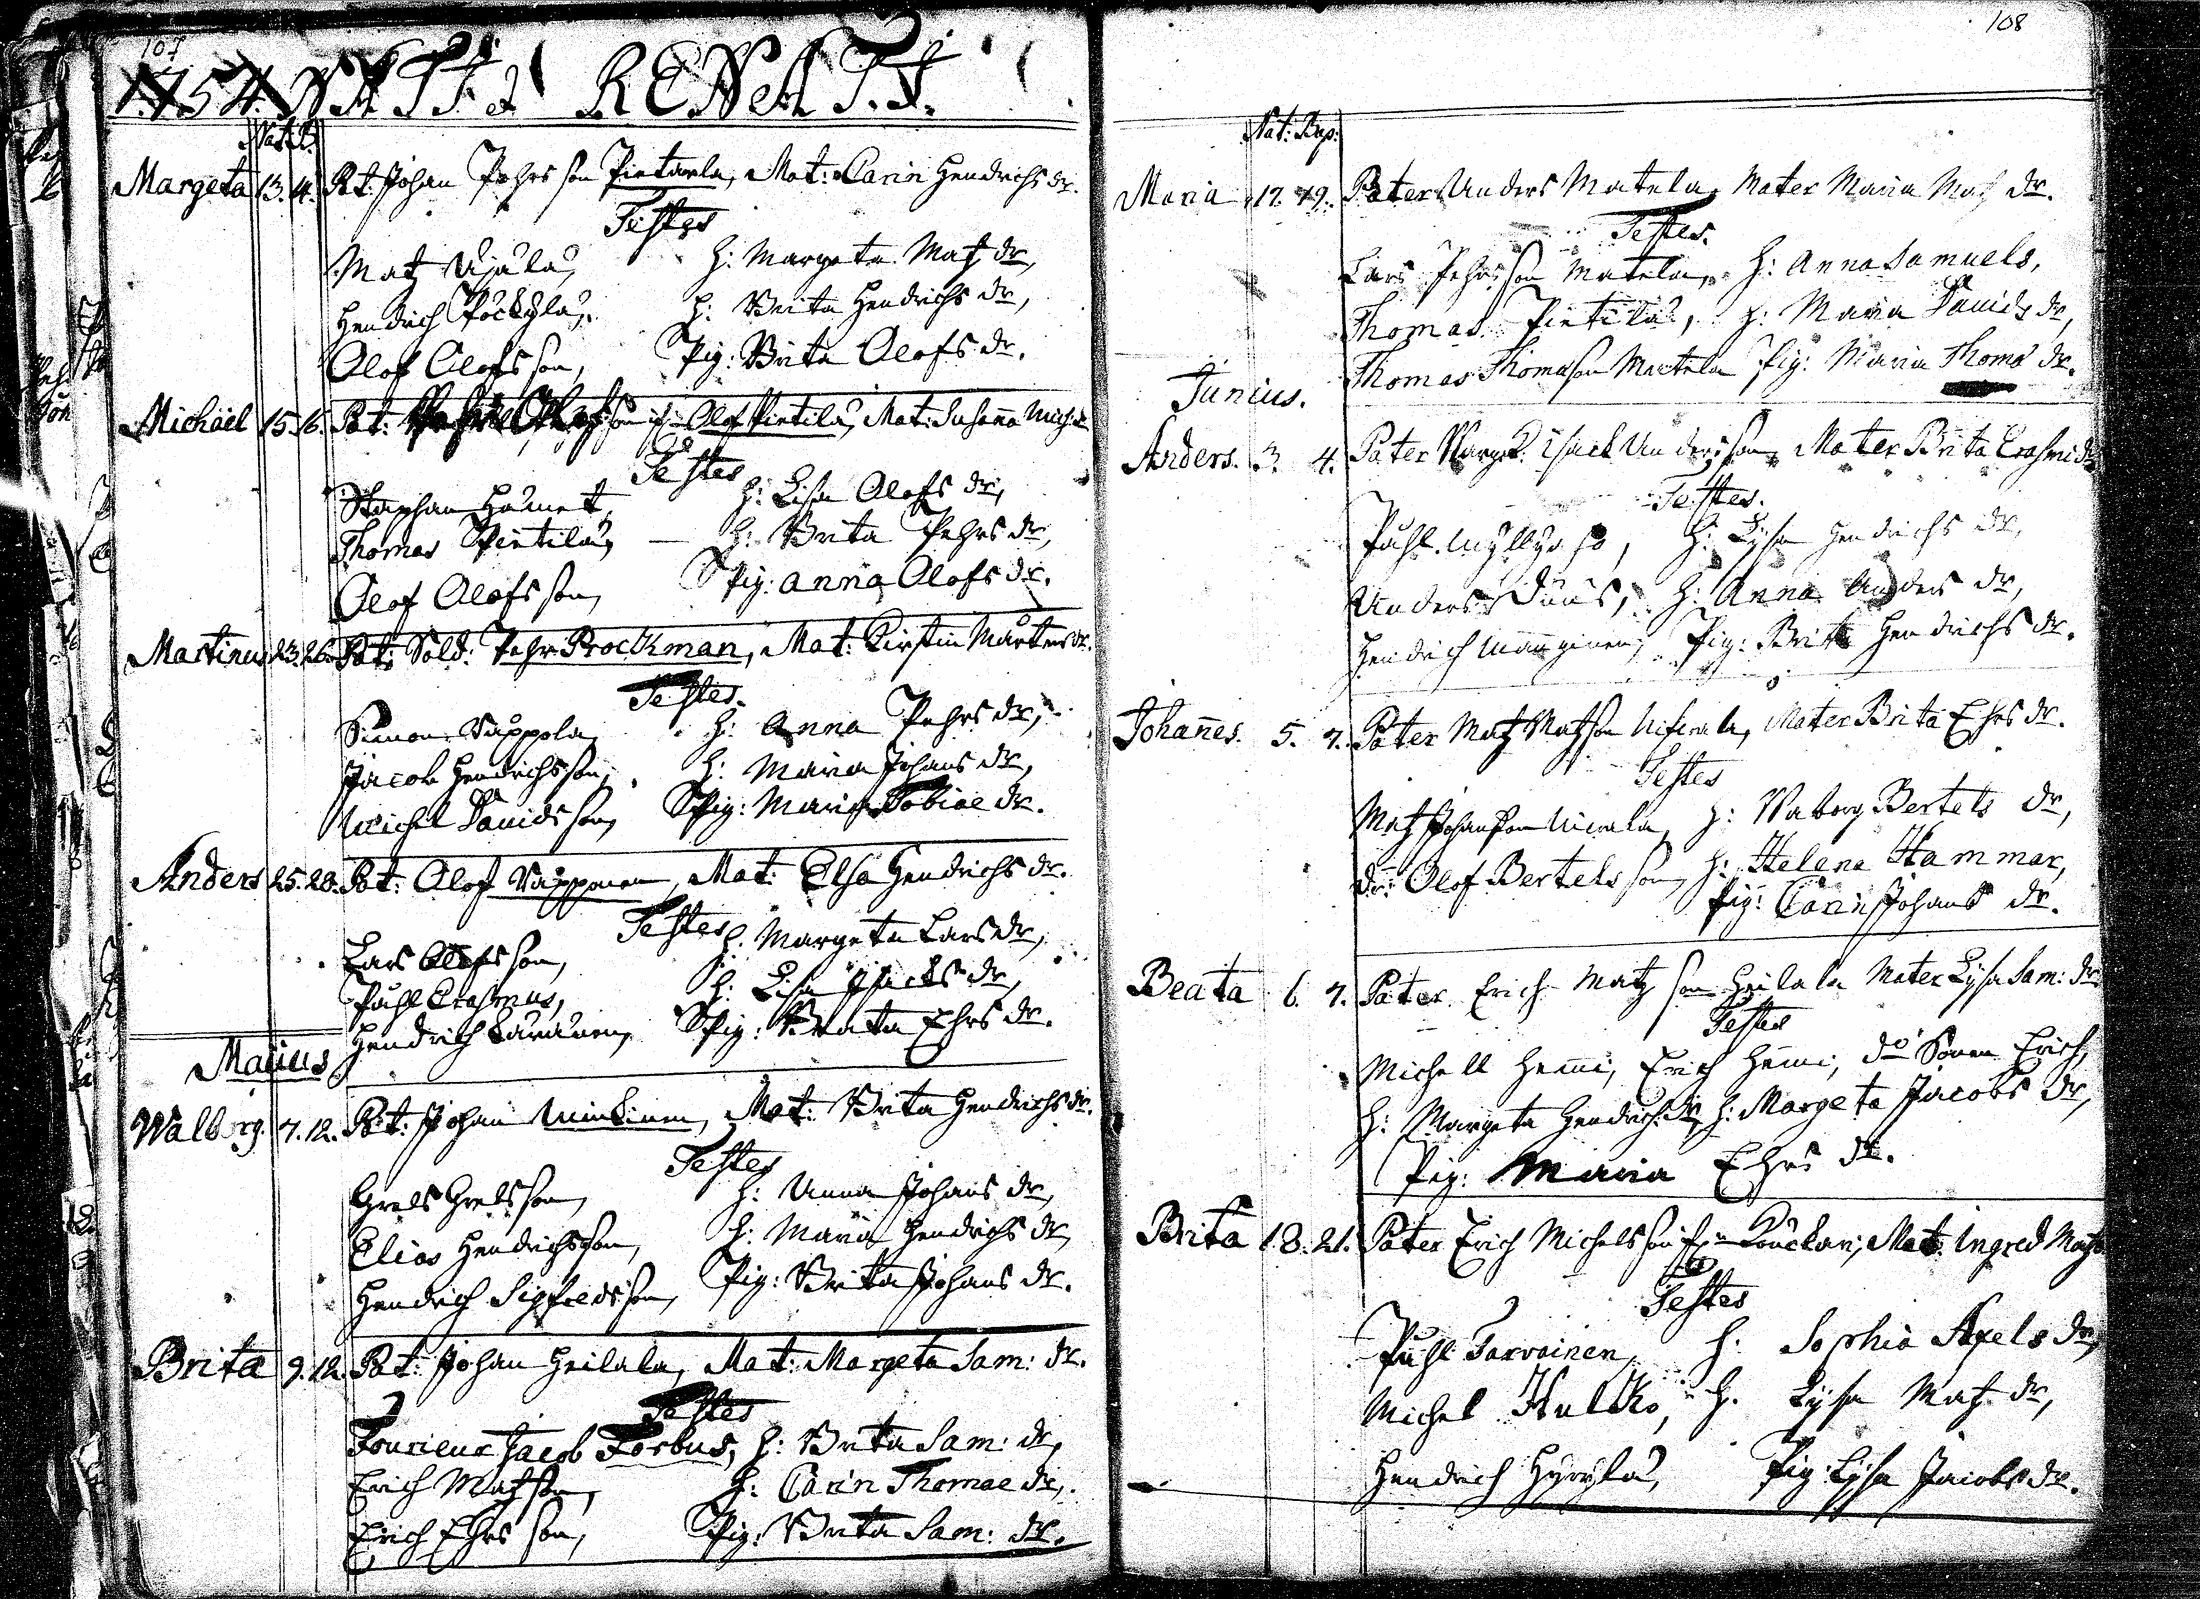 107
1754. NATI et RENATI.
Nat: B:
Margeta 13. 14. Pt: Johan Pehrs son Pietarla, Mat: Carin Hendrichs dr.
Testes
Matz Ujula, h: Margeta Matz dr,
Hendrich Pöckylä, h: Brita Hendrichs dr,
Olof Olofs son, Pig: Brita Olofs dr.
Michäel 15. 16. Pat: Olof Pietilä, Mat: Susana Mich: dr
Testes
Staphan Hämet, h: Lisa Olofs dr,
Thomas Pietilä, h: Brita Pehrs dr,
Olof Olofs son, Pig: Anna Olofs dr.
Martinus 23. 26. Pat: Sold: Pehr Brockman, Mat: Kirstin Mårtens dr.
Testes.
Simon Vappola, h: Anna Pehrs dr,
Jacob Hendrichsson, h: Maria Johans dr,
Michel Davids son, Pig: Maria Tobiae dr.
Anders 25. 28. Pat: Olof Vapponen, Mat: Elsa Hendrichs dr.
Testes
Lars Olofs son, h: Margeta Lars dr,
Påhl Erasmus, h: Lisa Isacks dr,
Hendrich Lavonen, Pig: Beata Ehrs dr.
Majus
Walborg. 7. 12. Pat: Johan Minkinen, Mat: Brita Hendrichs dr.
Testes
Grels Grelsson, h: Anna Johans dr,
Elias Hendrichsson, h: Maria Hendrichs dr,
Hendrich Sigfredsson, Pig: Brita Johans dr.
Brita 9. 12. Pat: Johan Heilala, Mat: Margeta Sam: dr.
Testes
Fourieur Jacob Forbus, h: Brita Sam: dr,
Erich Matzson, h: Carin Thomae dr,
Erich Ehrs son, Pig: Brita Sam: dr.
108
Nat: Bap:
Maria 17. 19. Pater Anders Matela, Mater Maria Matz dr.
Testes.
Lars Pehrsson Matela, h: Anna Samuels,
Thomas Pietilä, h: Maria Davids dr,
Thomas Thomason Martela Pig: Maria Thomæ dr.
Junius.
Anders. 3. 4. Pater Isack Andersson, Mater Brita Erasmi dr
Testes.
Påhl Myllyrho, h: Lysa Hendrichs dr,
Anders Duus, h: Anna Anders dr,
Hendrich Manginen, Pig: Brita Hendrichs dr.
Johanes. 5. 7. Pater Matz Matzson, Mater Brita Ehrs dr.
Testes
Matz Johansson, h: Waborg Bertels dr,
dr: Olof Bertelsson, h: Helena Hammar,
Pig: Carin Johans dr.
Beata 6. 7. Pater Erich Matz son Heilala Mater Lysa Sam: dr
Testes
Michell Hemi, Erich Hemi, do Sonen Erich,
h: Margeta Hendrich: dr, h: Margeta Jacobs dr,
Pig: Maria Ehrs dr.
Brita 18. 21. Pater Erich Michelsson, Mat: Ingred Matz
Testes
Påhl Tarvainen, h: Sophia Axels dr,
Michel Hulko, h. Lysa Matz dr,
Hendrich Hyrylä, Pig: Lysa Jacobs dr.